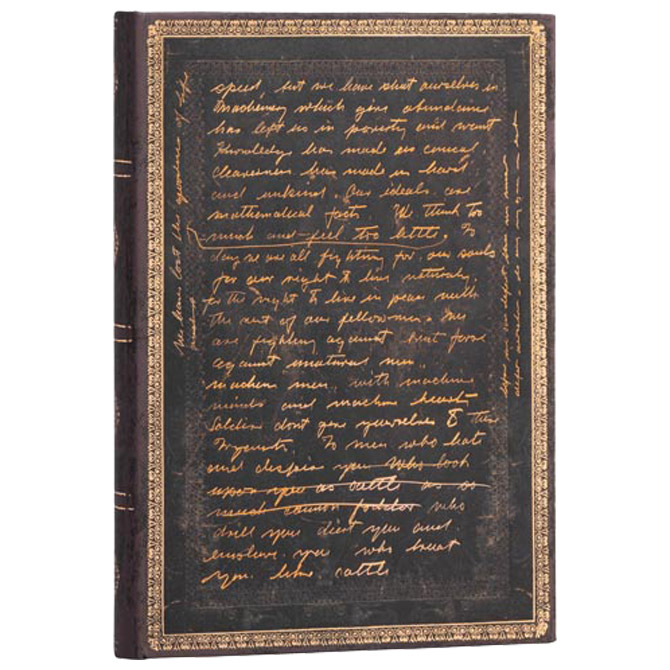 speed, but we have shut ourselves in
Machinery which gives abundance
has left us in poverty and want
Knowledge has made us cynical
cleverness has made us hard
and unkind. Our ideals are
mathematical facts. We think too
much and feel too little. To
day we are all fighting for our souls
for our right to live naturally
for the right to live in peace with
the rest of our fellow men. We
are fighting against brut force
against unatural men,
machine men with machine
minds and machine hearts
Soldiers dont give yourselves to these
To men who hate
and despise you who look
upon you as cattle as so
much cannon fodder who
drill you diet you and
enslave you who treat
you like cattle
We have lost the of life